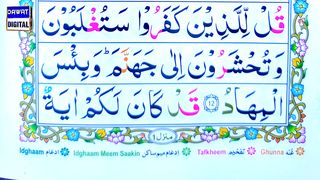 DAWAT
DIGITAL
قُلْ لِّلَّذِيْنَ كَفَرُوْا سَتُغْلَبُوْنَ
وَ تُحْشَرُوْنَ اِلٰى جَهَنَّمَ ؕ وَ بِئْسَ
الْمِهَادُ ۝۱۲ قَدْ كَانَ لَكُمْ اٰيَةٌ
منزل ۱
Idghaam ادغام Idghaam Meem Saakin ادغام میم ساکن Tafkheem تفخیم Ghunna غنّہ